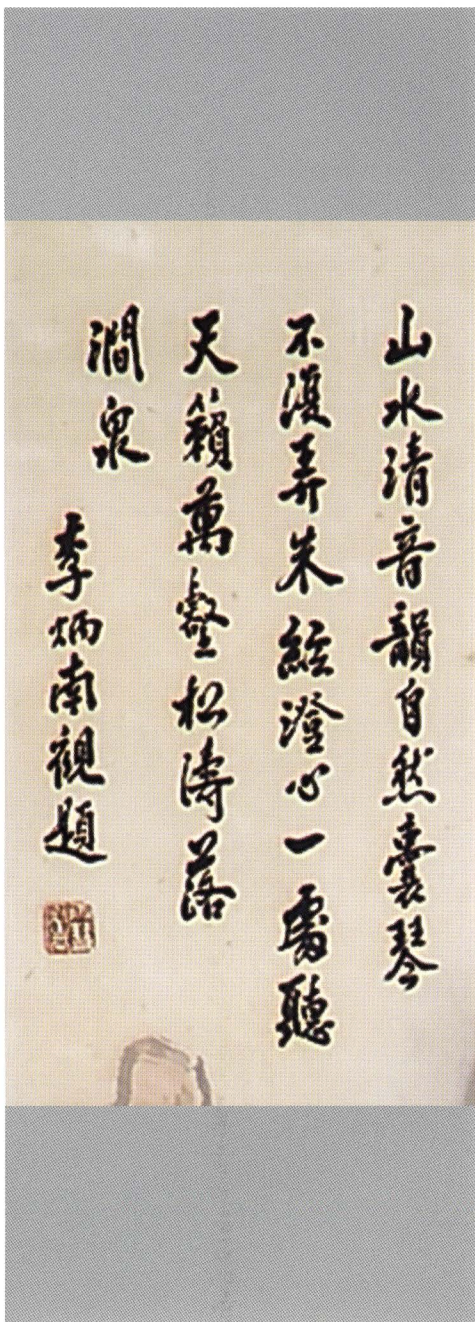 山水清音韻自然囊琴
不復弄朱絃澄心一處聽
天籟萬壑松濤落
澗泉
李炳南觀題